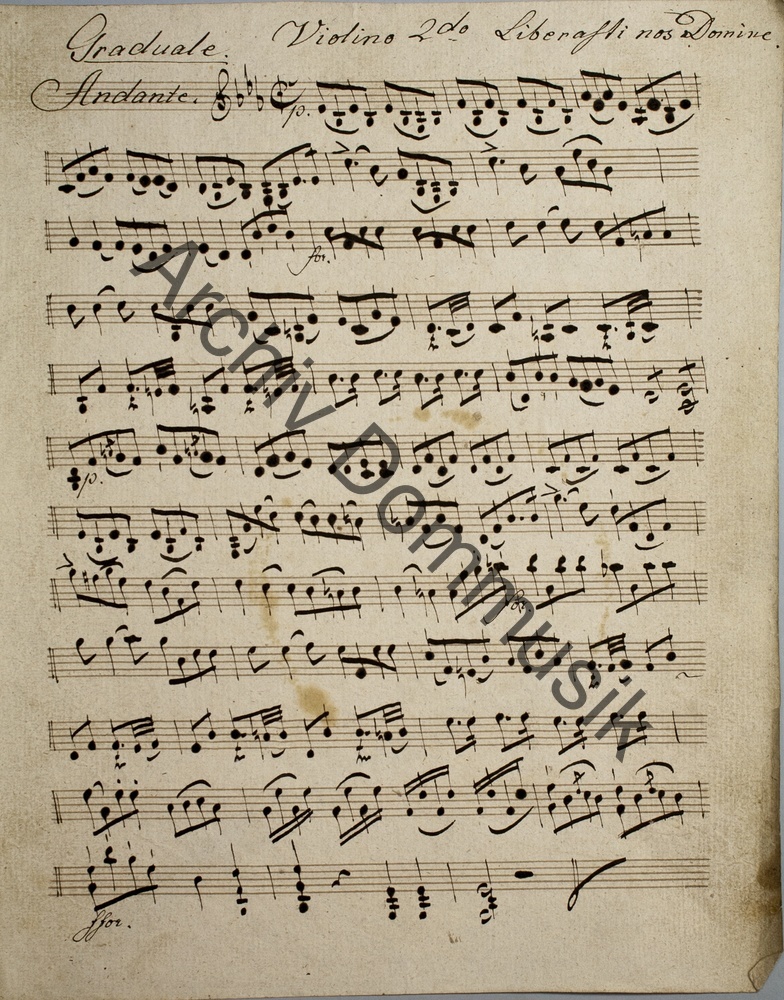 Graduale. Violino 2do Liberasti nos Domine
Andante.
p.
for.
p.
for.
ffor.
Archiv Dommusik